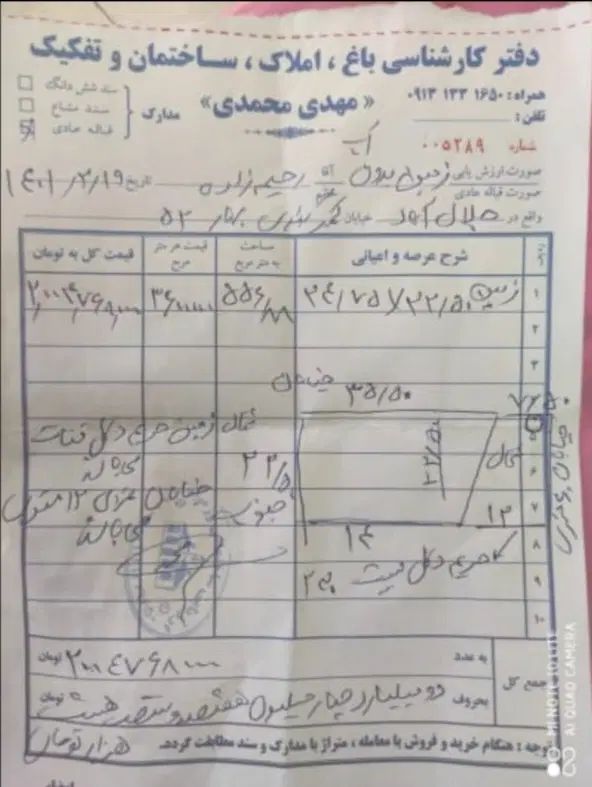 دفتر کارشناسی باغ ، املاک ، ساختمان و تفکیک
« مهدی محمدی »
همراه : ۱۶۵۰ ۱۳۳ ۰۹۱۳
تلفن :
مدارک
سند شش دانگ
سند مشاع
قباله عادی
شماره ۰۰۵۲۸۹
صورت ارزش یابی زمین آقا رحیم زاده تاریخ ۱۴۰۱/۲/۱۹
صورت قباله عادی
واقع در جلال آباد خیابان بهار ۵۲
ردیف شرح عرصه و اعیانی مساحت به متر مربع قیمت هر متر مربع قیمت کل به تومان
۱ زمین ۲۴/۷۵ × ۲۲/۵۰ ۵۵۶/۸۸
۲
۳
خیابان
۳۵/۵۰
۷/۵۰
۵
شمال زمین حریم دکل قنات
۲۲/۵۰
شمال
خیابان
۶
می باشد
۲۲/۵
۷
جنوب خیابان ۱۲ متری
۱۲
می باشد
۱۴
۸
حریم دکل
۹
۱۰
جمع کل
به عدد ۲۰۰۴۷۶۸۰۰۰ تومان
بحروف دو میلیارد چهار میلیون هفتصد و شصت هشت تومان
هزار تومان
توجه : هنگام خرید و فروش یا معامله ، متراژ با مدارک و سند مطابقت گردد.
MI NOTE 10 LITE
AI QUAD CAMERA